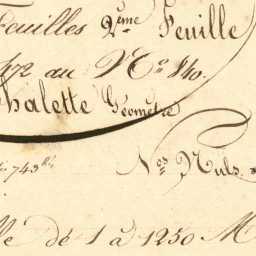 Feuilles 2ème Feuille
472 au No 840.
Chalette Géomètre
743 bis Nos Nuls.
lle de 1 à 1250 M